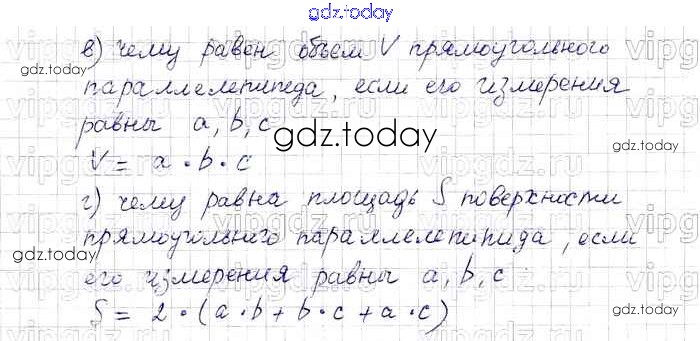 gdz.today
в) чему равен объем V прямоугольного
gdz.today
параллелепипеда, если его измерения
равны a, b, c
gdz.today
V = a · b · c
г) чему равна площадь S поверхности
прямоугольного параллелепипида, если
gdz.today
его измерения равны a, b, c
gdz.today
S = 2 · (a · b + b · c + a · c)